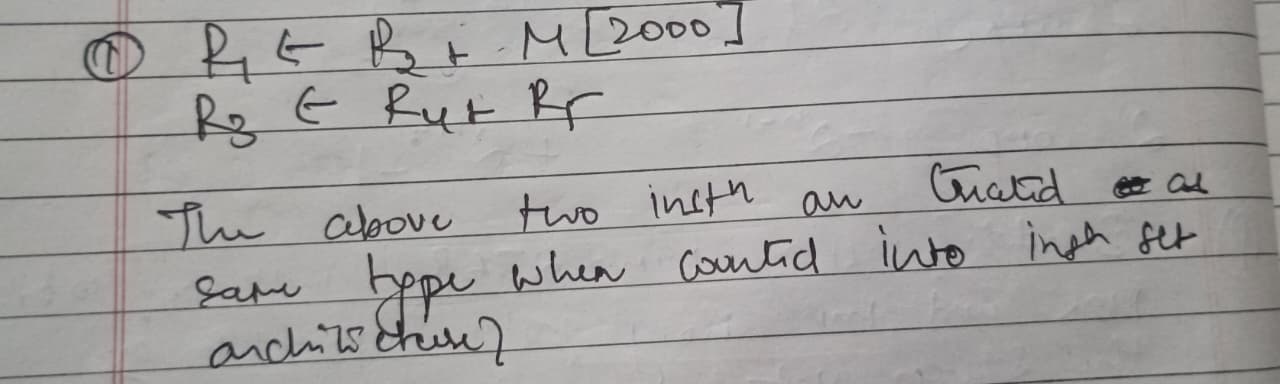 ① R1 ← R2 + M[2000]
R3 ← R4 + R5
The above two instn are treated as
same type when counted into instn set
architecture?